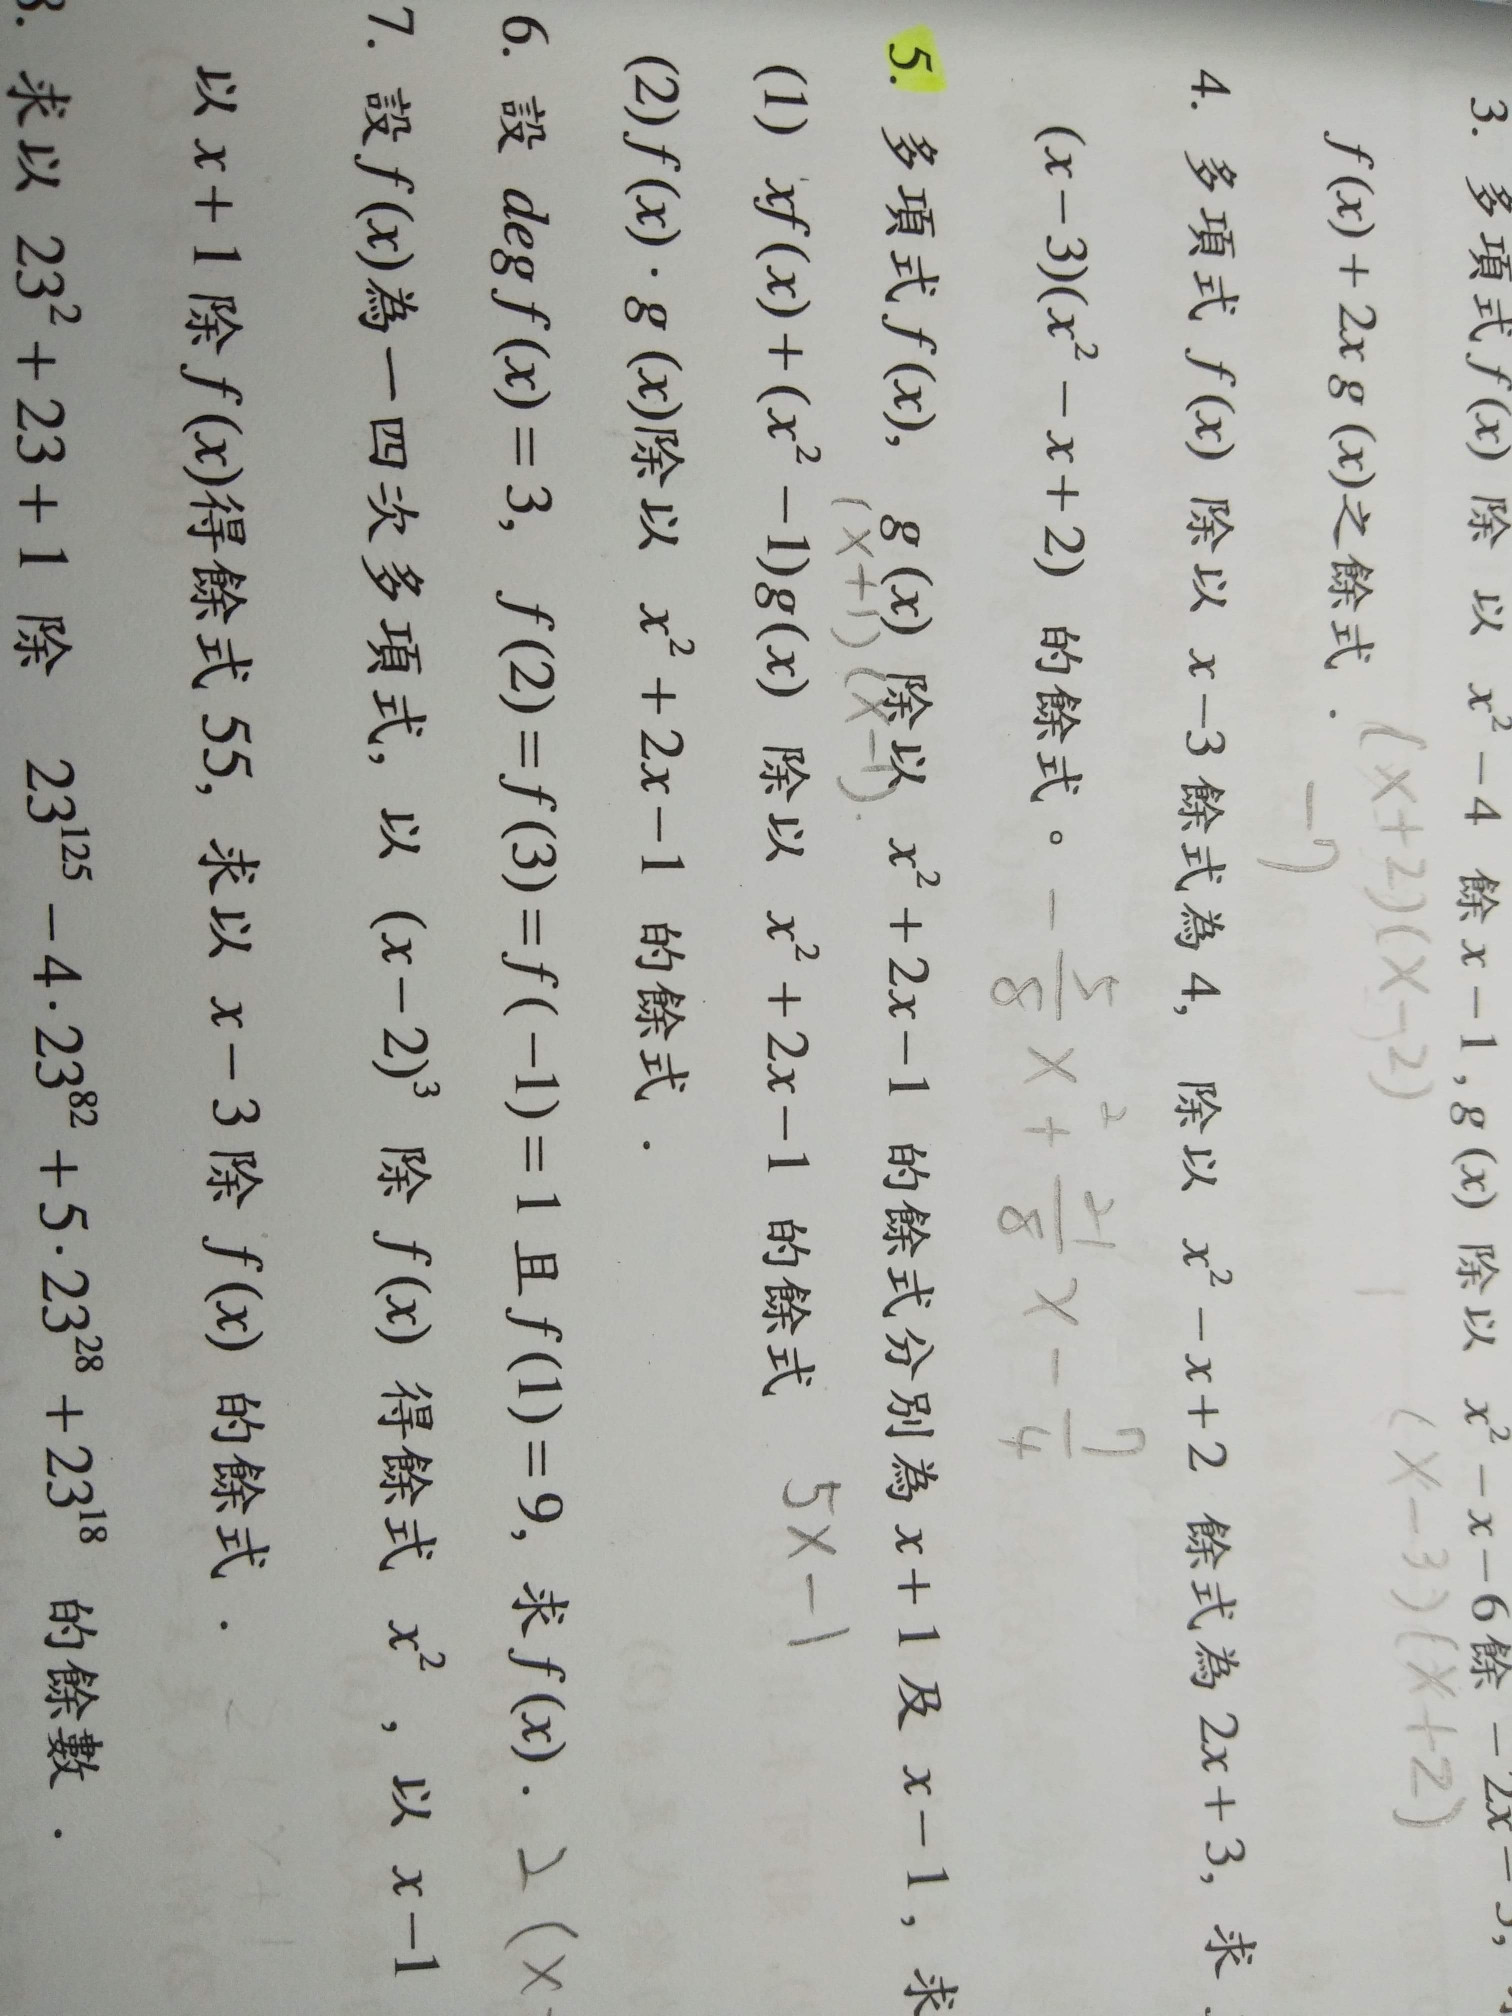 3. 多項式 f(x) 除 以 x² − 4 餘 x − 1 , g (x) 除以 x² − x − 6 餘 − 2x −
(x+2)(x−2) (x−3)(x+2)
f(x) + 2x g (x)之餘式 .
−7
4. 多項式 f(x) 除以 x−3 餘式為 4, 除以 x² − x + 2 餘式為 2x + 3, 求
(x−3)(x² − x + 2) 的餘式。 −5/8 x² + 21/8 x − 7/4
5. 多項式 f(x), g (x) 除以 x² + 2x − 1 的餘式分別為 x + 1 及 x − 1 , 求
(x+1)(x−1).
(1) xf(x) + (x² − 1)g(x) 除以 x² + 2x − 1 的餘式 5x − 1
(2) f(x) · g (x)除以 x² + 2x − 1 的餘式 .
6. 設 deg f(x) = 3, f(2) = f(3) = f(−1) = 1 且 f(1) = 9, 求 f(x) . 2 (x
7. 設 f(x)為一四次多項式, 以 (x − 2)³ 除 f(x) 得餘式 x² , 以 x − 1
以 x + 1 除 f(x)得餘式 55, 求以 x − 3 除 f(x) 的餘式 .
求以 23² + 23 + 1 除 23¹²⁵ − 4·23⁸² + 5·23²⁸ + 23¹⁸ 的餘數 .